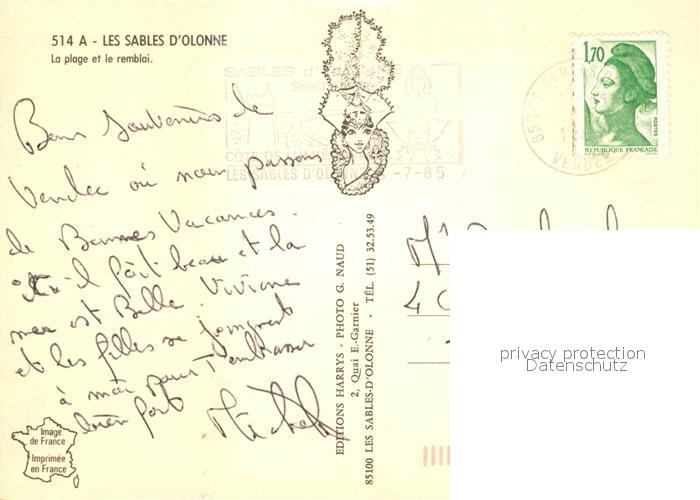 514 A - LES SABLES D'OLONNE
La plage et le remblai.
SABLES d'OLONNE
CÔTE DE
LES SABLES D'OLONNE -7-85
1,70
POSTES
REPUBLIQUE FRANÇAISE
85
VENDEE
Bons Souvenirs de
Vendée où nous passons
de Bonnes Vacances.
il fait beau et la
mer est Belle. Viviane
et les filles se joignent
à moi pour t'embrasser
bien fort
Michel
EDITIONS HARRYS - PHOTO G. NAUD
2, Quai E.-Garnier
85100 LES SABLES-D'OLONNE - TÉL. (51) 32.53.49
Mr
4
privacy protection
Datenschutz
Image
de France
Imprimée
en France